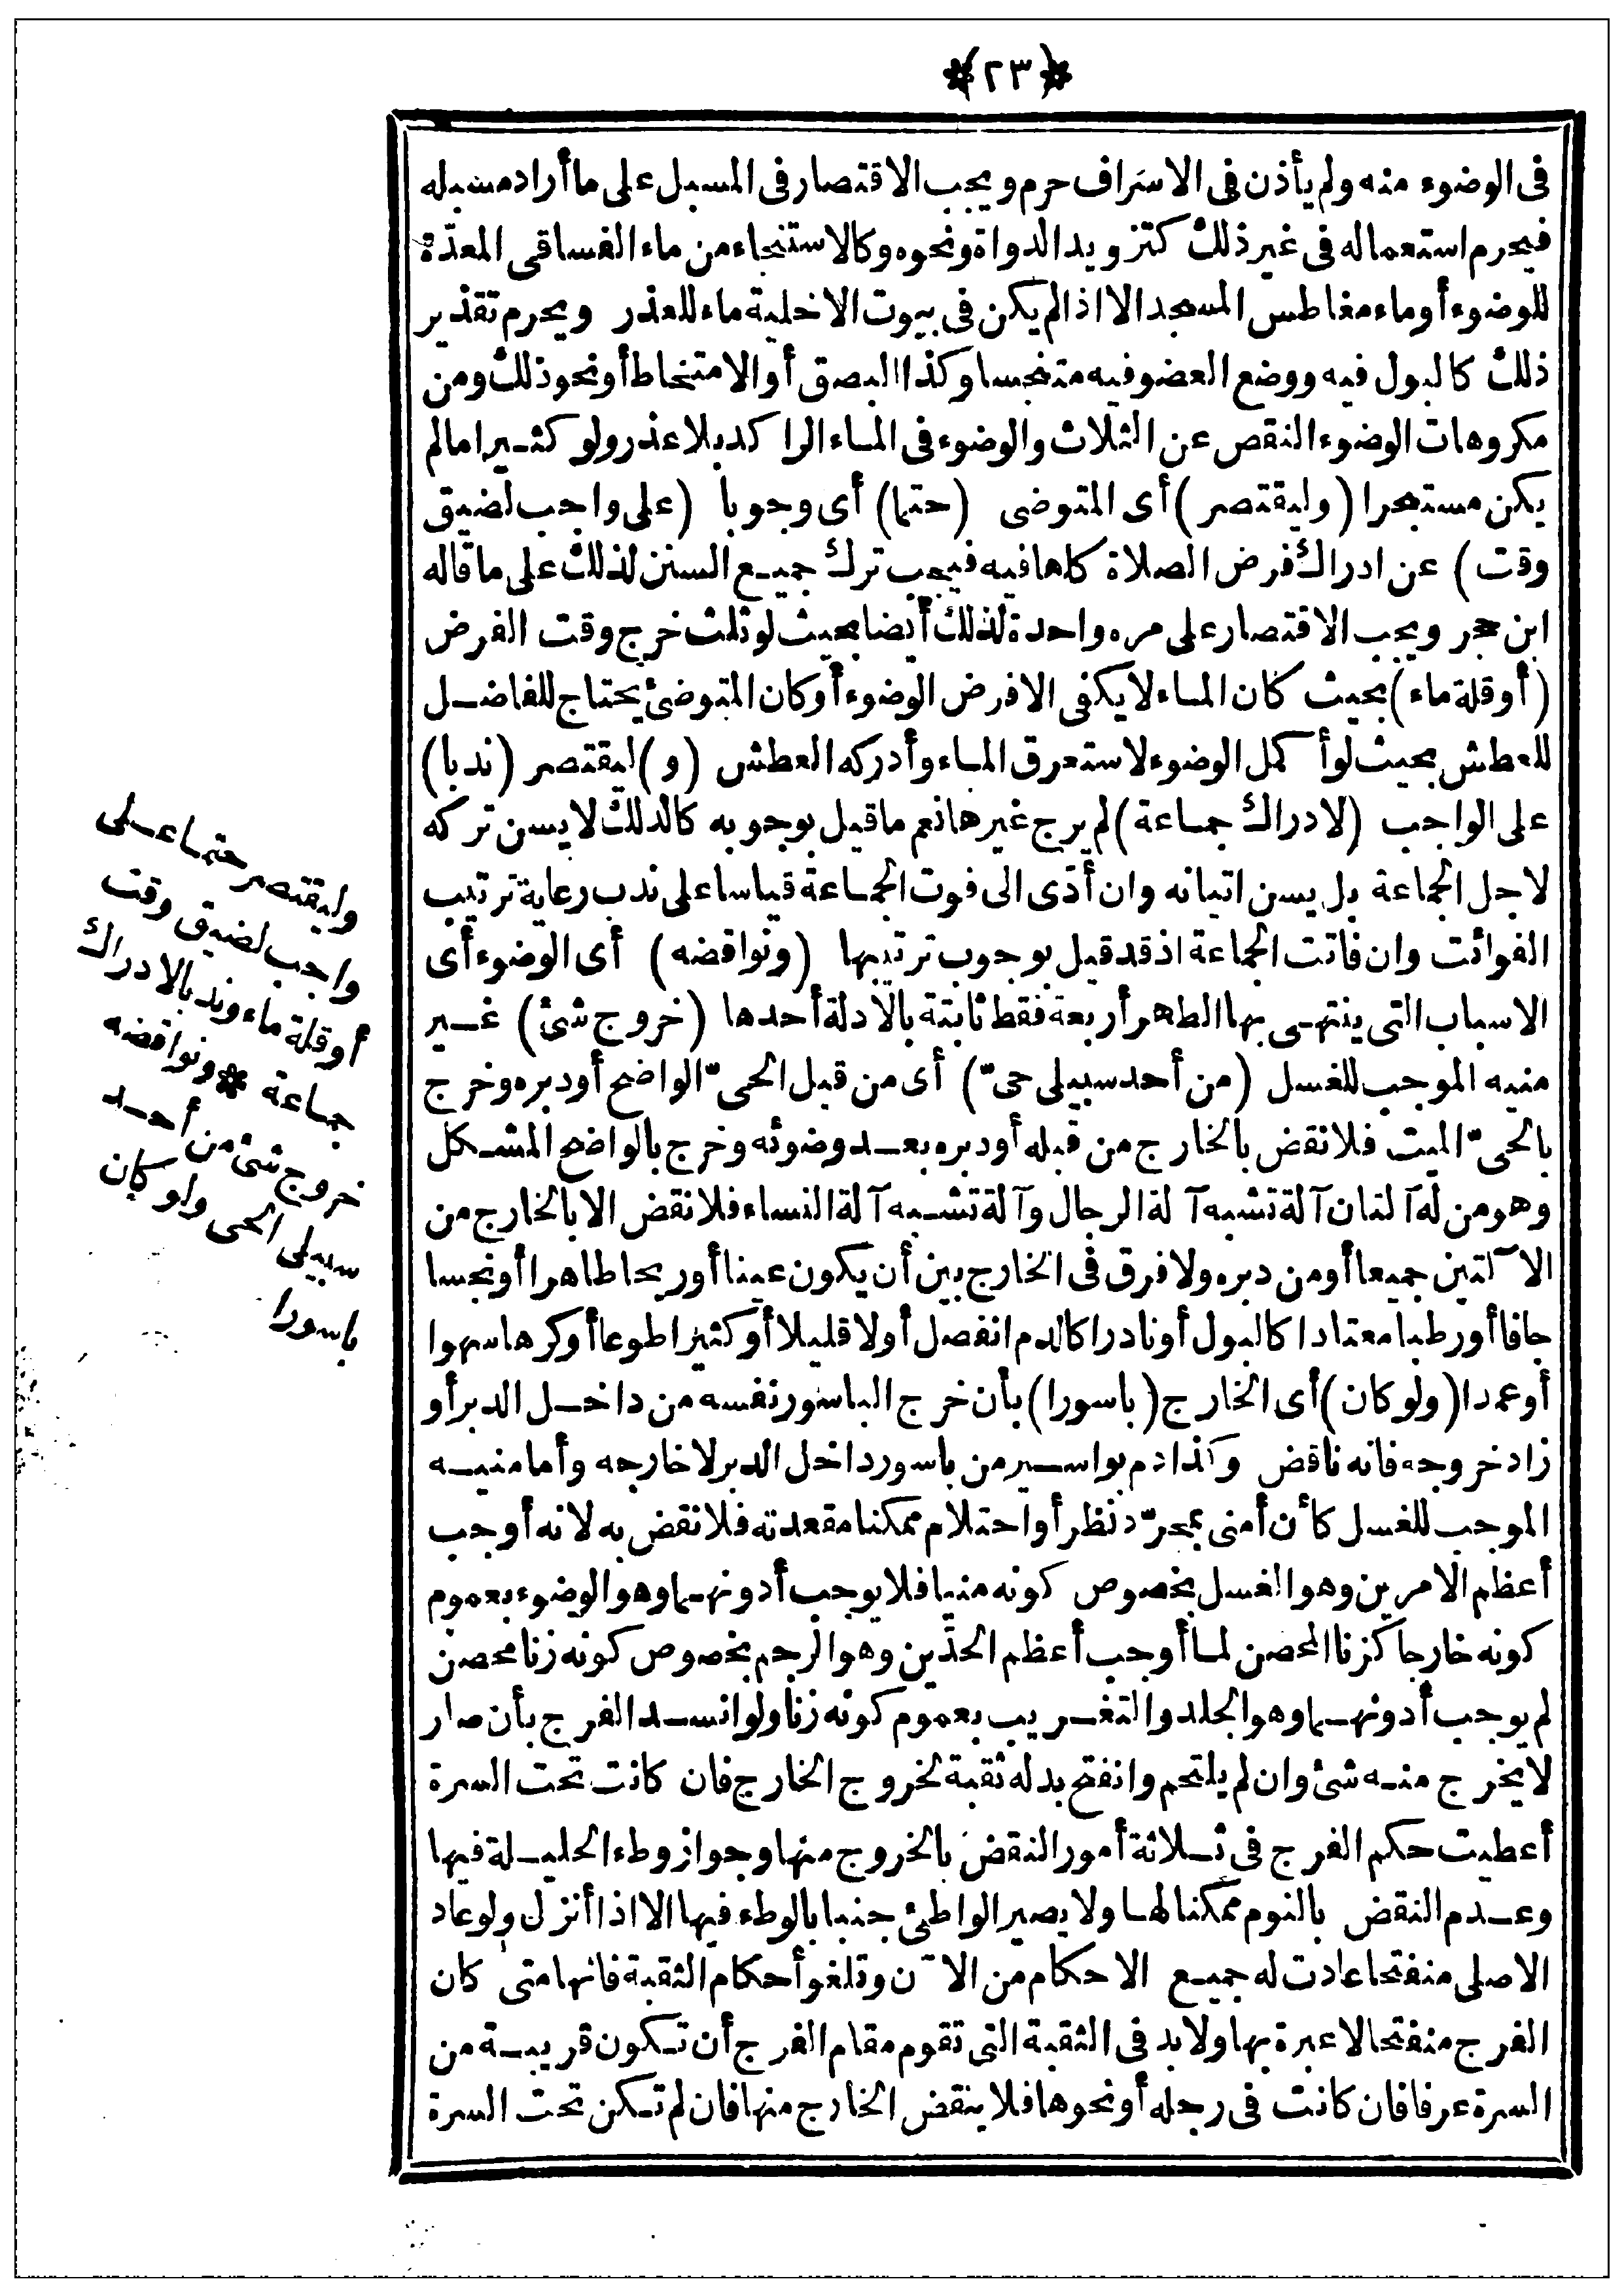 ﴿٢٣﴾
فى الوضوء منه ولم يأذن فى الاسراف حرم ويجب الاقتصار فى المسبل على ما أراد مسبله
فيحرم استعماله فى غير ذلك كتزويد الدواة ونحوه وكالاستنجاء من ماء الفساقى المعدّة
للوضوء أوماء مغاطس المسجد الا اذا لم يكن فى بيوت الاخلية ماء للعذر ويحرم تقذير
ذلك كالبول فيه ووضع العضو فيه متنجسا وكذا البصق أوالامتخاط أونحو ذلك ومن
مكروهات الوضوء النقص عن الثلاث والوضوء فى الماء الراكد بلا عذر ولو كثيرا مالم
يكن مستبحرا (وليقتصر) أى المتوضى (حتما) أى وجوبا (على واجب لضيق
وقت) عن ادراك فرض الصلاة كاها فيه فيجب ترك جميع السنن لذلك على ما قاله
ابن حجر ويجب الاقتصار على مره واحدة لذلك أيضا بحيث لو ثلث خرج وقت الفرض
(أوقلة ماء) بحيث كان الماء لا يكفى الا فرض الوضوء أوكان المتوضئ يحتاج للفاضل
للعطش بحيث لو أكمل الوضوء لاستعرق الماء وأدركه العطش (و) ليقتصر (ندبا)
على الواجب (لادراك جماعة) لم يرج غيرها نعم ما قيل بوجوبه كالدلك لا يسن تركه
لاجل الجماعة بل يسن اتيانه وان أدّى الى فوت الجماعة قياسا على ندب رعاية ترتيب
الفوائت وان فاتت الجماعة اذ قد قيل بوجوب ترتيبها (ونواقضه) أى الوضوء أى
الاسباب التى ينتهى بها الطهر أربعة فقط ثابتة بالأدلة أحدها (خروج شئ) غير
منيه الموجب للغسل (من أحد سبيلى حىّ) أى من قبل الحىّ الواضح أودبره وخرج
بالحىّ الميت فلا نقض بالخارج من قبله أودبره بعد وضوئه وخرج بالواضح المشكل
وهو من له آلتان آلة تشبه آلة الرجال وآلة تشبه آلة النساء فلا نقض الا بالخارج من
الآلتين جميعا أومن دبره ولا فرق فى الخارج بين أن يكون عينا أوريحا طاهرا أونجسا
جافا أورطبا معتادا كالبول أونادرا كالدم انفصل أولا قليلا أوكثيرا طوعا أوكرها سهوا
أوعمدا (ولوكان) أى الخارج (باسورا) بأن خرج الباسور نفسه من داخل الدبر أو
زاد خروجه فانه ناقض وكذا دم بواسير من باسور داخل الدبر لا خارجه وأما منيه
الموجب للغسل كأن أمنى بمجرّد نظر أواحتلام ممكنا مقعدته فلا نقض به لانه أوجب
أعظم الامرين وهو الغسل بخصوص كونه منيا فلا يوجب أدونهما وهو الوضوء بعموم
كونه خارجا كزنا المحصن لما أوجب أعظم الحدّين وهو الرجم بخصوص كونه زنا محصن
لم يوجب أدونهما وهو الجلد والتغريب بعموم كونه زنا ولو انسد الفرج بأن صار
لا يخرج منه شئ وان لم يلتحم وانفتح بدله ثقبة لخروج الخارج فان كانت تحت السرة
أعطيت حكم الفرج فى ثلاثة أمور النقض بالخروج منها وجواز وطء الحليلة فيها
وعدم النقض بالنوم ممكنا لها ولا يصير الواطئ جنبا بالوطء فيها الا اذا أنزل ولو عاد
الاصلى منفتحا عادت له جميع الاحكام من الآن وتلغو أحكام الثقبة فانها متى كان
الفرج منفتحا لا عبرة بها ولا بد فى الثقبة التى تقوم مقام الفرج أن تكون قريبة من
السرة عرفا فان كانت فى رجله أونحوها فلا ينقض الخارج منها فان لم تكن تحت السرة
وليقتصر حتما على
واجب لضيق وقت
أوقلة ماء وندبا لادراك
جماعة * ونواقضه
خروج شئ من أحد
سبيلى الحى ولو كان
باسورا